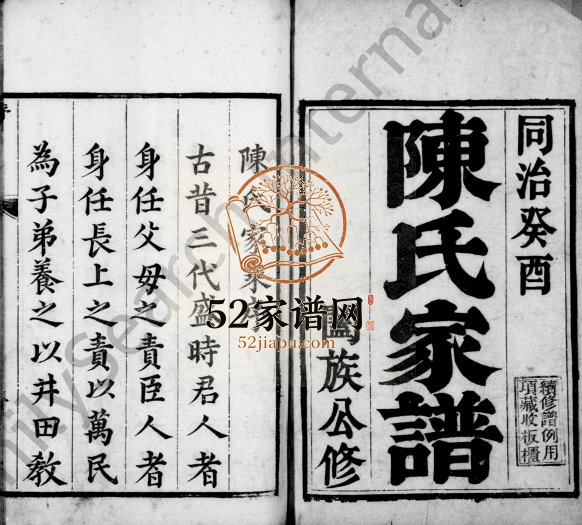 同治癸酉
陳氏家譜
續修譜例用
項藏收板櫃
闔族公修
陳氏家乘序
古昔三代盛時君人者
身任父母之責臣人者
身任長上之責以萬民
為子弟養之以井田教
52家谱网
52jiapu.com